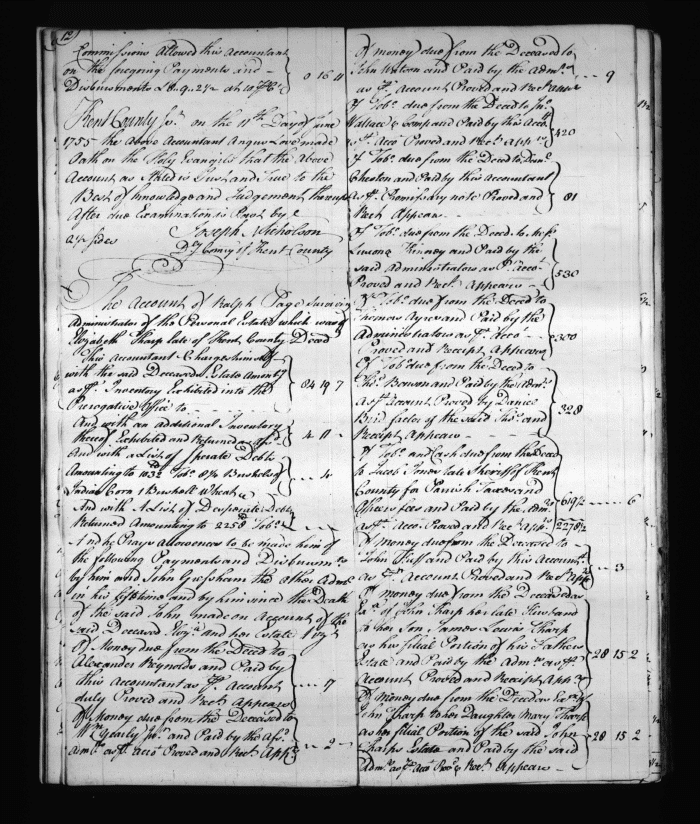 12
Commissions Allowed this Accountant
on the foregoing Payments and
Disbursments £8.9.2½ at 10 Ct
0 16 11
Kent County Ss. on the 11th Day of June
1755 the above Accountant Angus Love made
Oath on the Holy Evangels that the above
Account as Stated is Just and True to the
Best of knowledge and Judgement thereupon
After due Examination is Past by
2½ sides Joseph Nicholson
Dy Comry of Kent County
The Account of Ralph Page Surviving
Administrator of the Personal Estate which was of
Elizabeth Tharp late of Kent County Deced
This Accountant Charges himself
with the said Deceaseds Estate Amount
as Inventory Exhibited into the
Prerogative Office to
84 19 7
And with an additional Inventory
thereof Exhibited and Returned as afsd
4 11 -
And with a List of Sperate Debts
Amounting to 1032 Tobo 8½ Bushels of
Indian Corn 1 Bushell Wheat &
- - 4
And with A List of Desperate Debts
Returned Amounting to 2258 Tobo
And he Prays Allowances to be made him of
the following Payments and Disbursmts
by him and John Gresham the other Admr
in his lifetime and by him since the Death
of the said John made on Account of the
said Deceased and her Estate
Of Money due from the Deced to
Alexander Reynolds and Paid by
this Accountant as Account
duly Proved and Rect Appears
- - 7
Of Money due from the Deceased to
and Paid by the afsd
admr as Acct Proved and Rect App
- - 2 -
Of money due from the Deceased to
John Watson and Paid by the Admr
as Account Proved and Rect
- - 9
Of Tobo due from the Deced to
Wallace & Comp and Paid by this Acct
as Acct Proved and Rect App
420
Of Tobo due from the Deced to
Cheston and Paid by this Accountant
as Promissary note Proved and
Rect Appear
81
Of Tobo due from the Deced to
and Paid by the
said Administrators as Acco
Proved and Rect Appears
530
Of Tobo due from the Deced to
Thomas Ayres and Paid by the
Administrators as Acco
Proved and Receipt Appears
300
Of Tobo due from the Deced to
Thos Bowman and Paid by the
as Account Proved by Daniel
Bird factor of the said Thos and
Receipt Appears
328
Of Tobo and Cash due from the Deced
to Jacob Jones late Sheriff of Kent
County for Parish Taxes and
Officers fees and Paid by the Adm
as Acco Proved and Rect App
619½ - - 6
2278½
Of money due from the Deceased to
John and Paid by this Accountt
as Account Proved and Rect App
- - 3
Of money due from the Deced as
Exx of John Tharp her late Husband
to her Son James Lewis Tharp
as his filial Portion of his Fathers
Estate and Paid by the Admr as
Account Proved and Receipt App
28 15 2
Of Money due from the Deced as Exx of
John Tharp to her Daughter Mary Tharp
as her filial Portion of the said John
Tharps Estate and Paid by the said
Admr as Acct Prov'd & Rect Appear
28 15 2